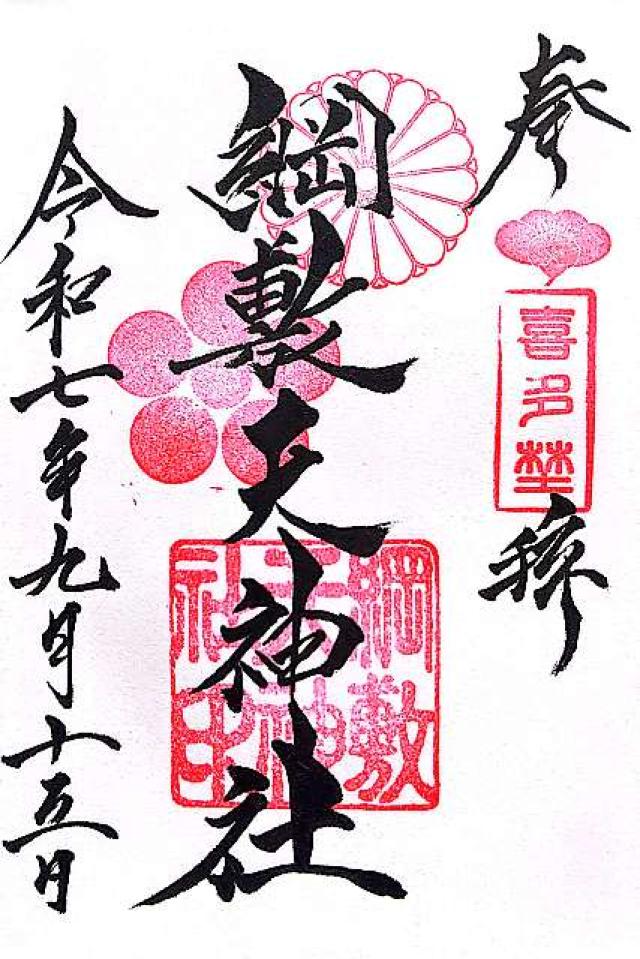 奉
喜多埜
拝
綱敷天神社
綱敷
天神
社印
令和七年九月十五日